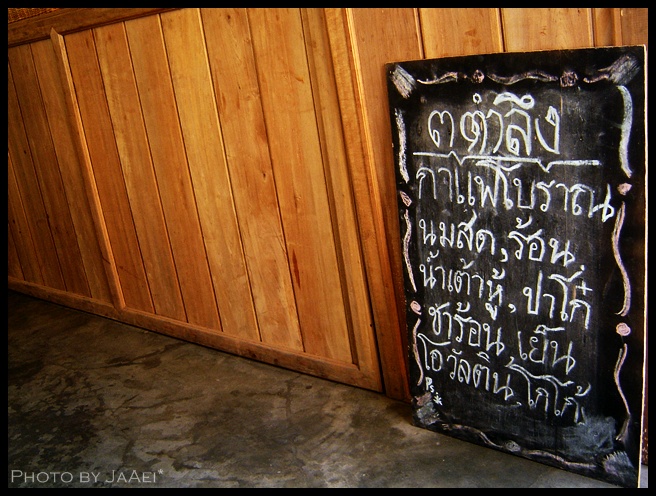 ๓ตำลึง
กาแฟโบราณ
นมสด,ร้อน,
น้ำเต้าหู้,ปาโก๋
ชาร้อน,เย็น
โอวัลติน,โกโก้
PHOTO BY JAAEI*